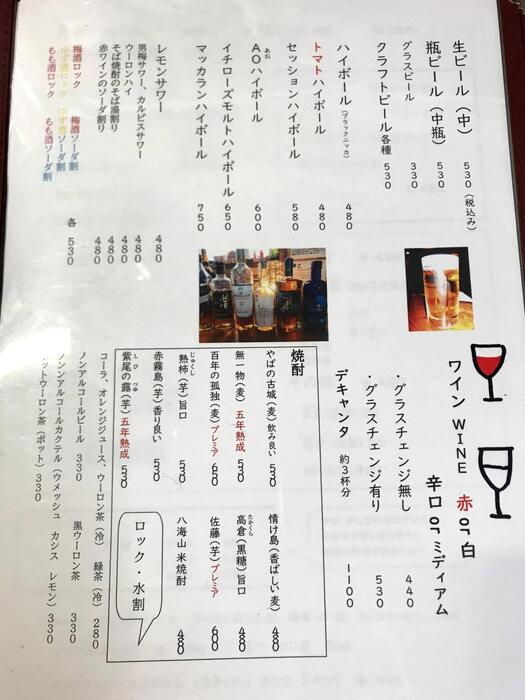 生ビール(中) 530(税込み)
瓶ビール(中瓶) 530
グラスビール 330
クラフトビール各種 530
ハイボール(ブラックニッカ) 480
トマトハイボール 480
セッションハイボール 580
AOハイボール 600
あお
イチローズモルトハイボール 650
マッカランハイボール 750
レモンサワー 480
男梅サワー、カルピスサワー 480
ウーロンハイ 480
そば焼酎のそば湯割り 480
赤ワインのソーダ割り 480
梅酒ロック 梅酒ソーダ割
ゆず酒ロック ゆず酒ソーダ割
もも酒ロック もも酒ソーダ割
各530
ワイン WINE 赤 or 白
辛口 or ミディアム
・グラスチェンジ無し 440
・グラスチェンジ有り 530
デキャンタ 約3杯分 1100
焼酎
やばの古城(麦)飲み良い 530
無一物(麦)五年熟成 530
百年の孤独(麦)プレミア 650
じゅくし
熟柿(芋)旨口 530
赤霧島(芋)香り良い 530
しび つゆ
紫尾の露(芋)五年熟成 530
情け島(香ばしい麦) 480
たかくら
高倉(黒糖)旨口 480
佐藤(芋)プレミア 600
八海山 米焼酎 480
ロック・水割
コーラ、オレンジジュース、ウーロン茶(冷) 緑茶(冷) 280
ノンアルコールビール 330 黒ウーロン茶 330
ノンアルコールカクテル(ウメッシュ カシス レモン) 330
ホットウーロン茶(ポット) 330